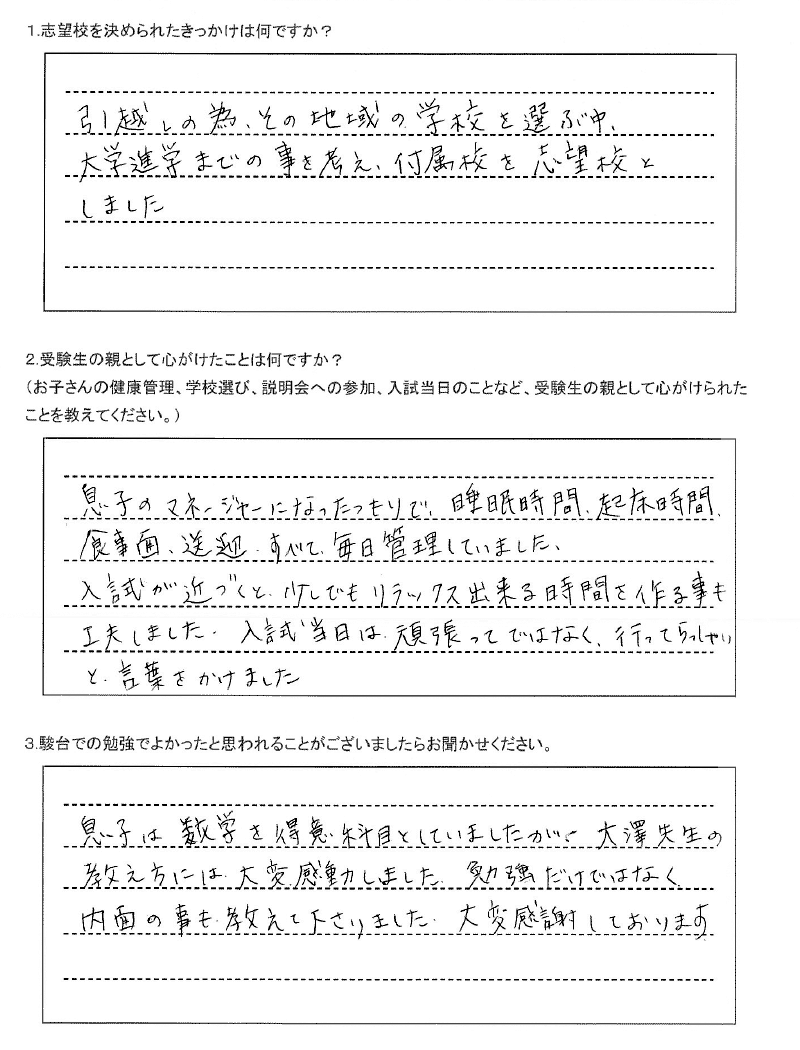 1.志望校を決められたきっかけは何ですか？
引越しの為、その地域の学校を選ぶ中、
大学進学までの事を考え、付属校を志望校と
しました
2.受験生の親として心がけたことは何ですか？
（お子さんの健康管理、学校選び、説明会への参加、入試当日のことなど、受験生の親として心がけられた
ことを教えてください。）
息子のマネージャーになったつもりで、睡眠時間、起床時間、
食事面、送迎、すべて、毎日管理していました、
入試が近づくと、少しでもリラックス出来る時間を作る事も
工夫しました。入試当日は、頑張ってではなく、行ってらっしゃい
と、言葉をかけました
3.駿台での勉強でよかったと思われることがございましたらお聞かせください。
息子は数学を得意科目としていましたが、大澤先生の
教え方には、大変感動しました。勉強だけではなく
内面の事も、教えて下さりました。大変感謝しております